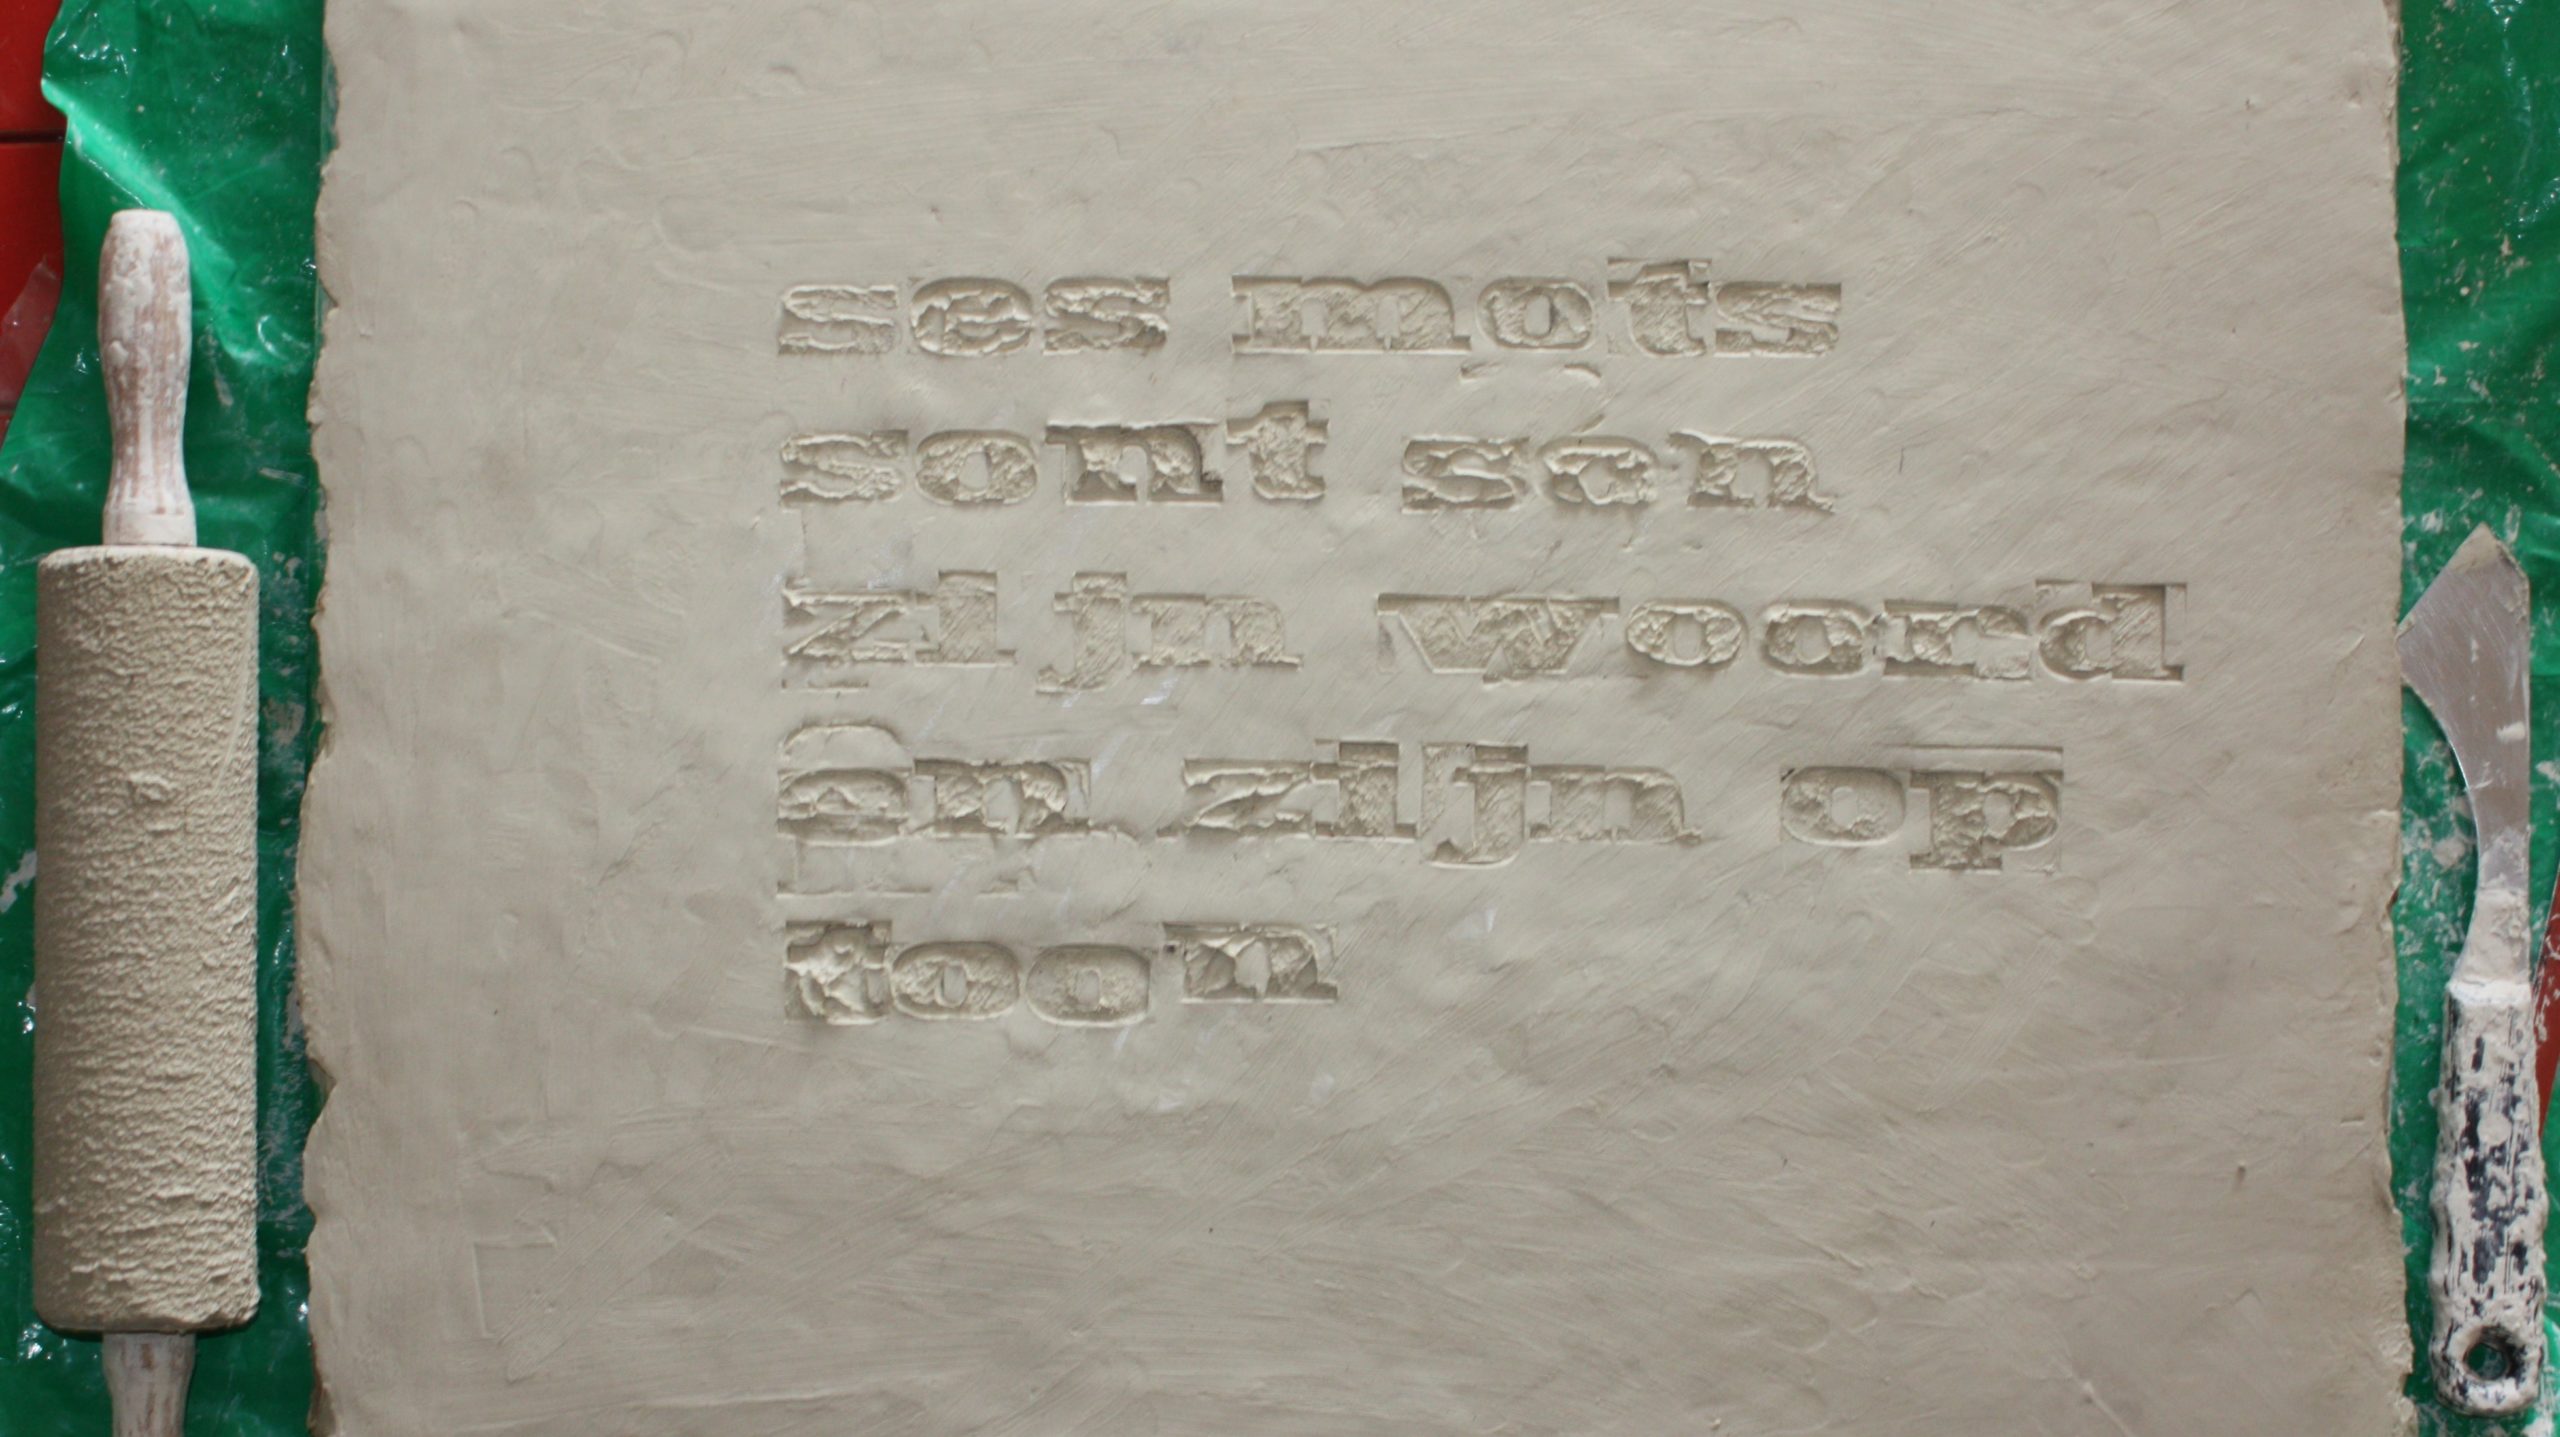 ses mots
sont son
zijn woord
en zijn op
toon